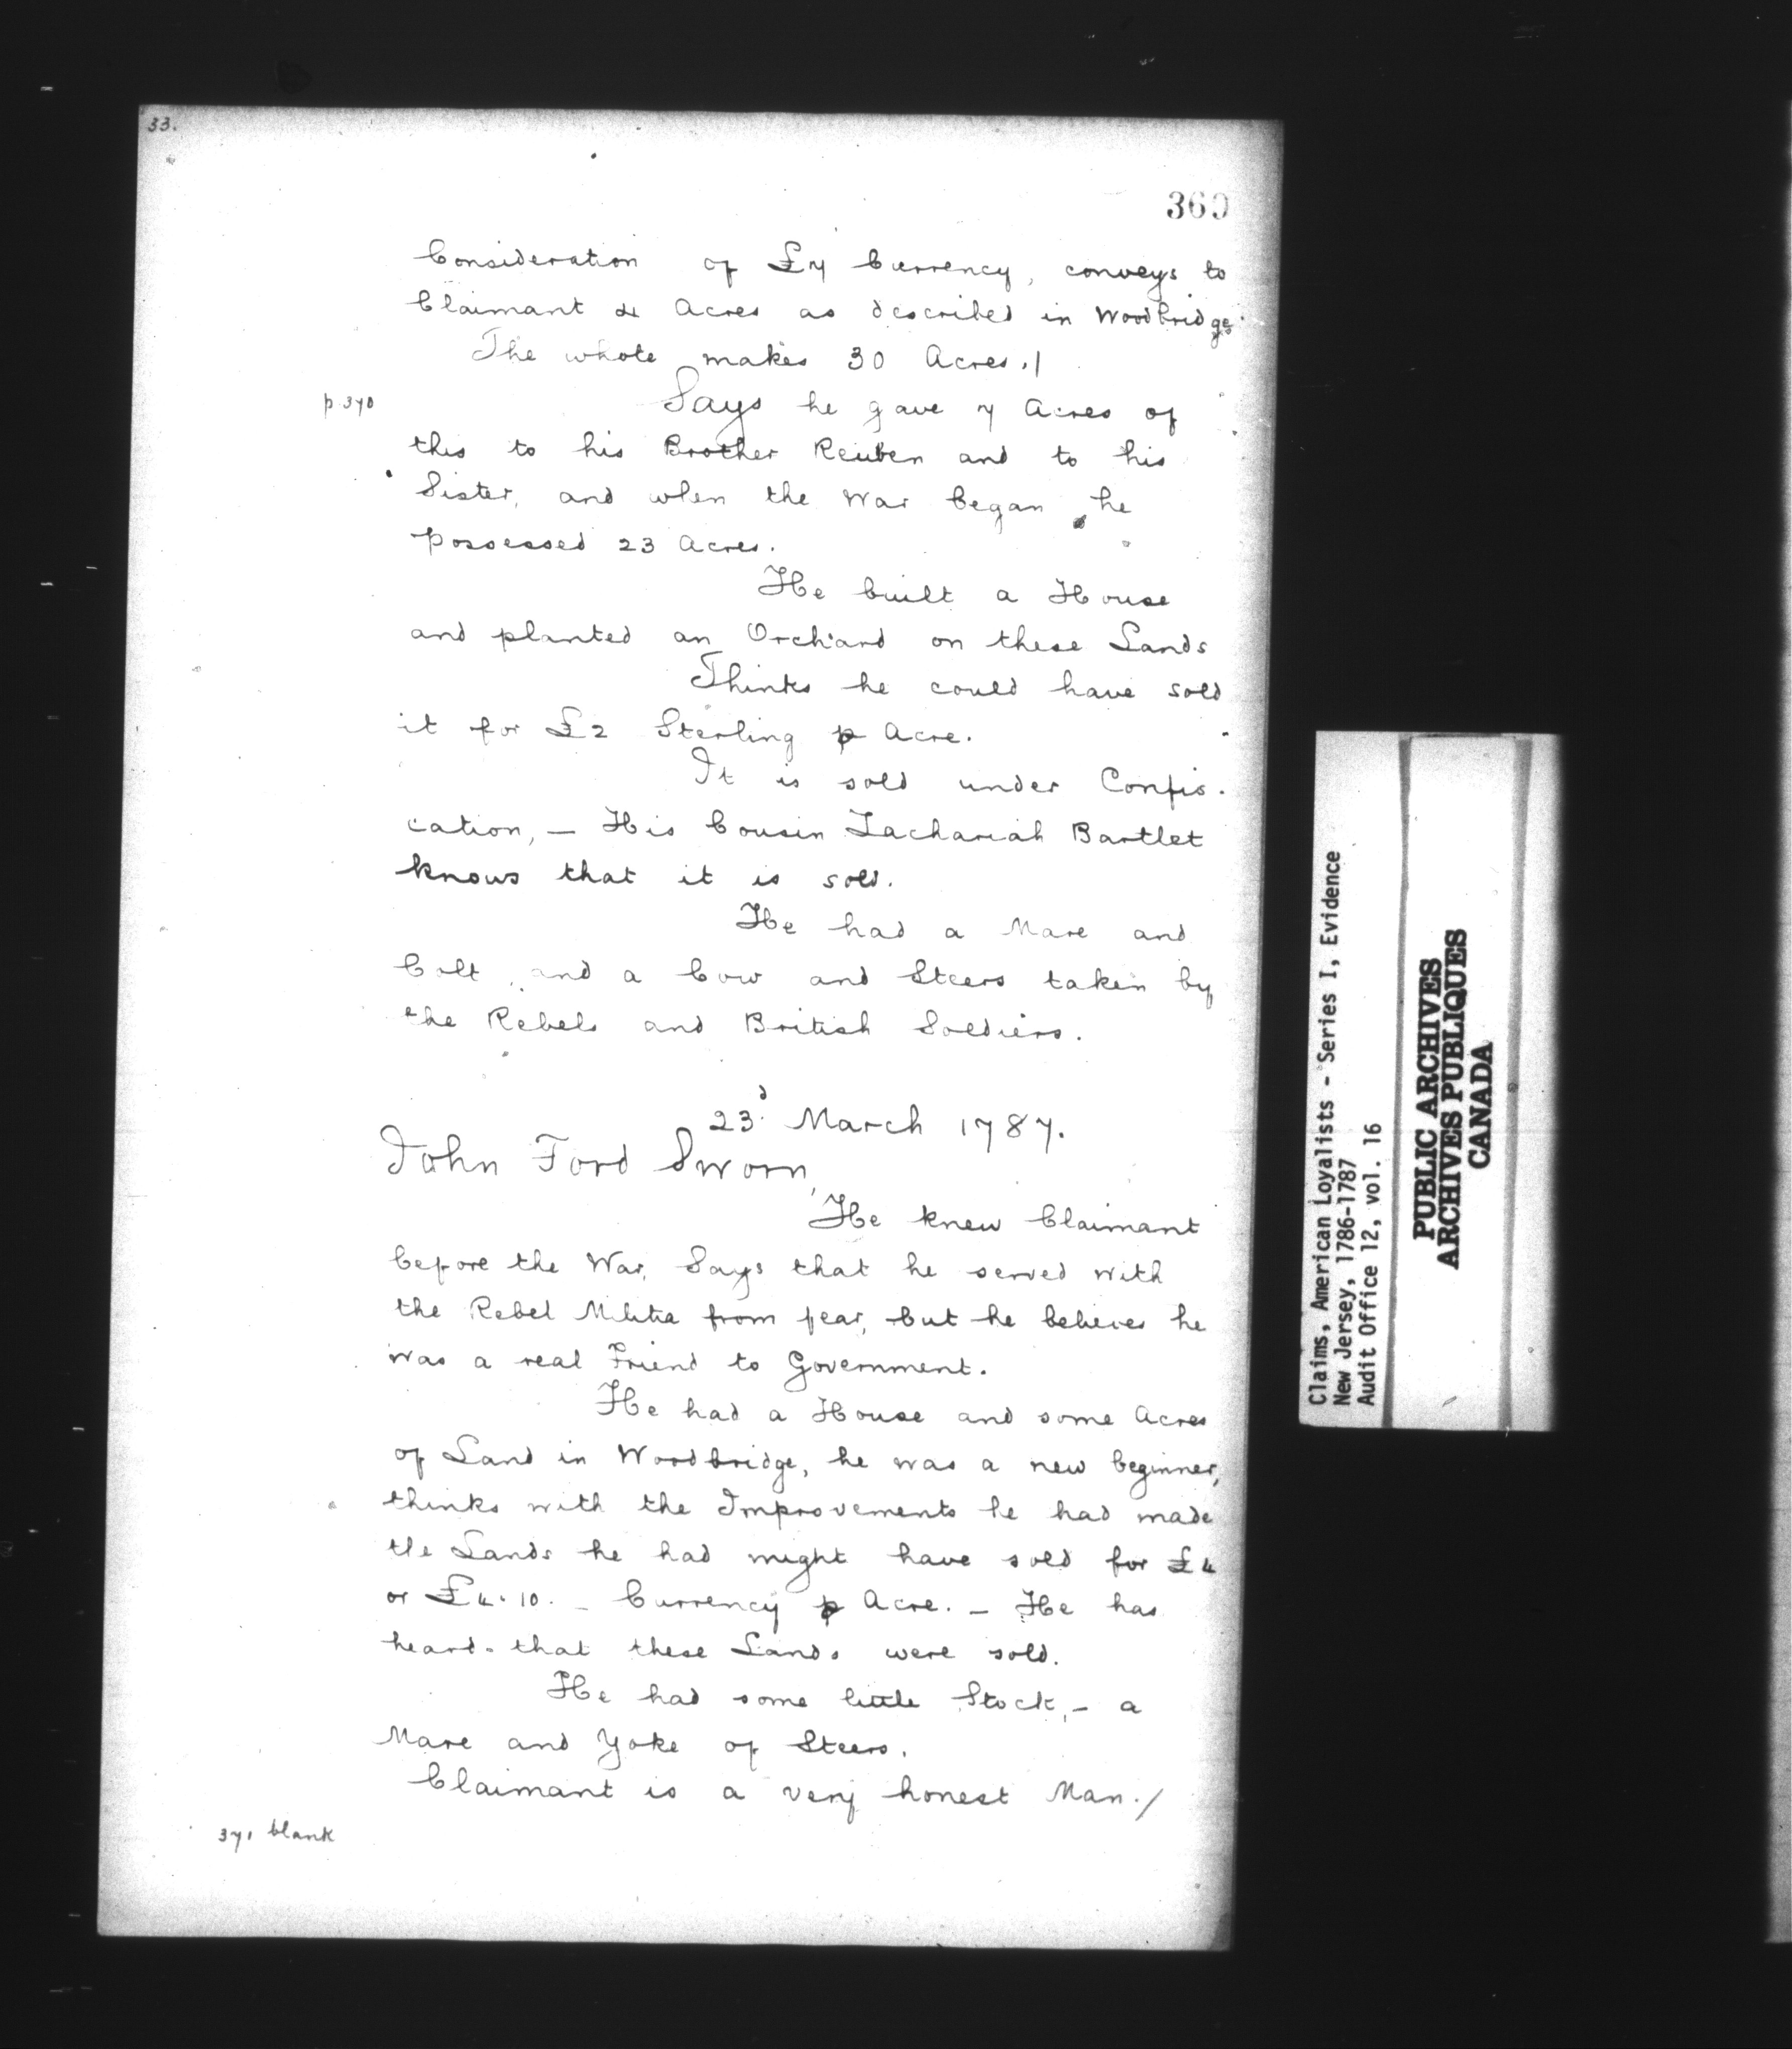 33.
360
Consideration of £7 Currency, conveys to
Claimant 4 Acres as described in Woodbridge.
The whole makes 30 Acres./
p 370
Says he gave 7 Acres of
this to his Brother Reuben and to his
Sister, and when the War began he
possessed 23 Acres.
He built a House
and planted an Orchard on these Lands
Thinks he could have sold
it for £2 Sterling p Acre.
It is sold under Confis-
cation, — His Cousin Zachariah Bartlet
knows that it is sold.
He had a Mare and
Colt, and a Cow and Steers taken by
the Rebels and British Soldiers.
23d. March 1787.
John Ford Sworn,
He knew Claimant
before the War, Says that he served with
the Rebel Militia from fear, but he believes he
was a real Friend to Government.
He had a House and some Acres
of Land in Woodbridge, he was a new beginner,
thinks with the Improvements he had made
the Lands he had might have sold for £4
or £4.10. – Currency p Acre. – He has
heard that these Lands were sold.
He had some little Stock, – a
Mare and Yoke of Steers.
Claimant is a very honest Man./
371 blank
Claims, American Loyalists - Series I, Evidence
New Jersey, 1786-1787
Audit Office 12, vol. 16
PUBLIC ARCHIVES
ARCHIVES PUBLIQUES
CANADA